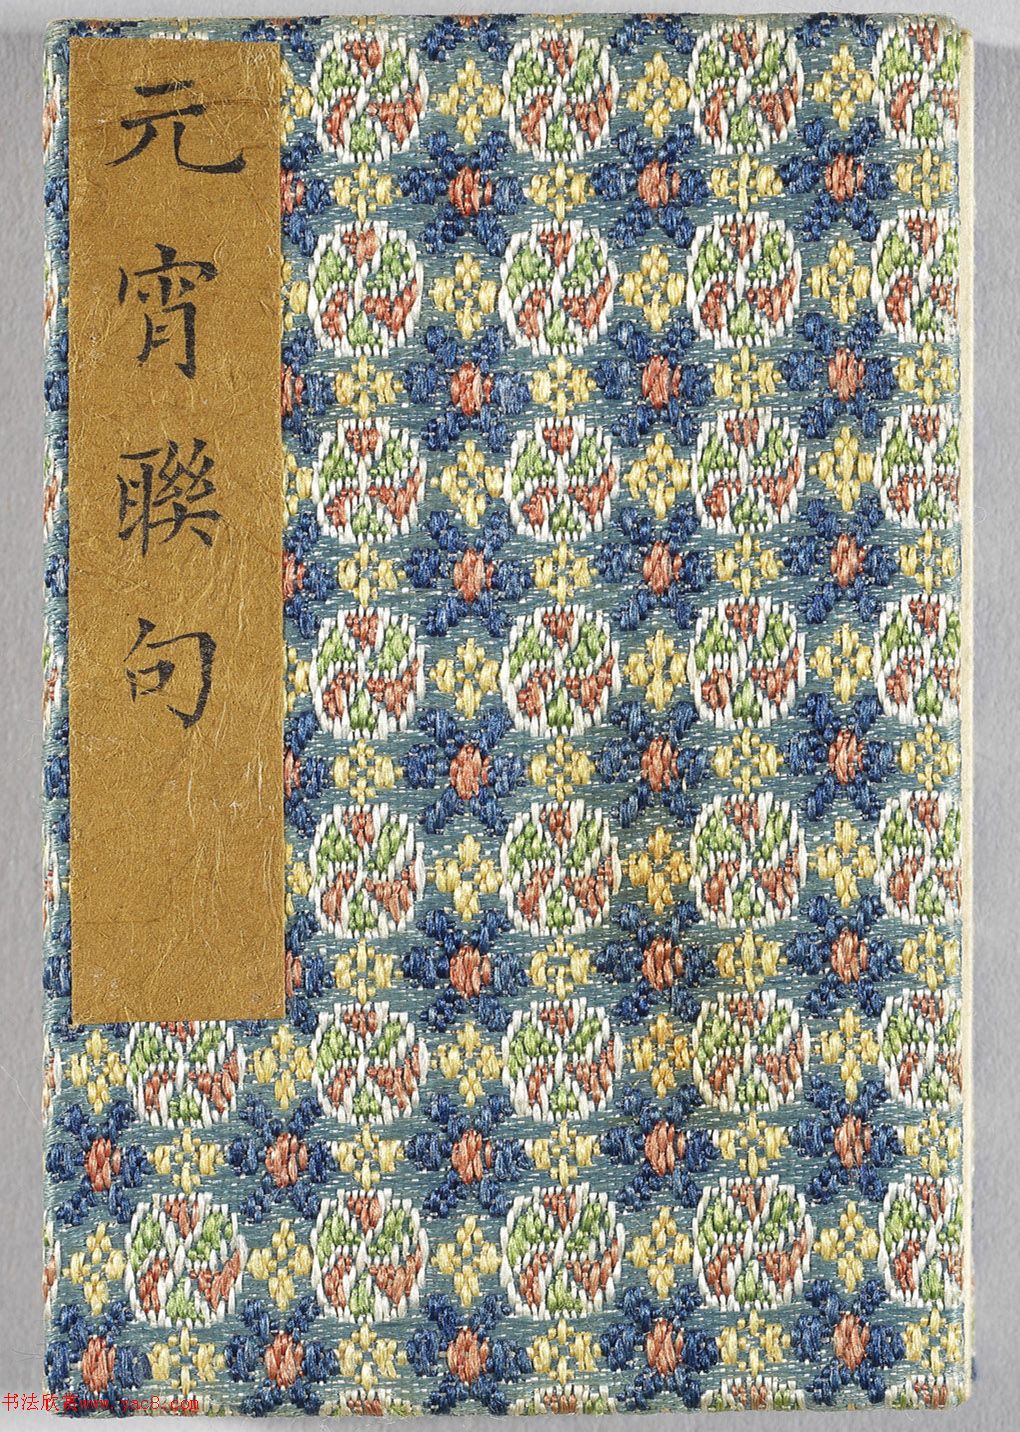 元宵聯句
书法欣赏www.yac8.com